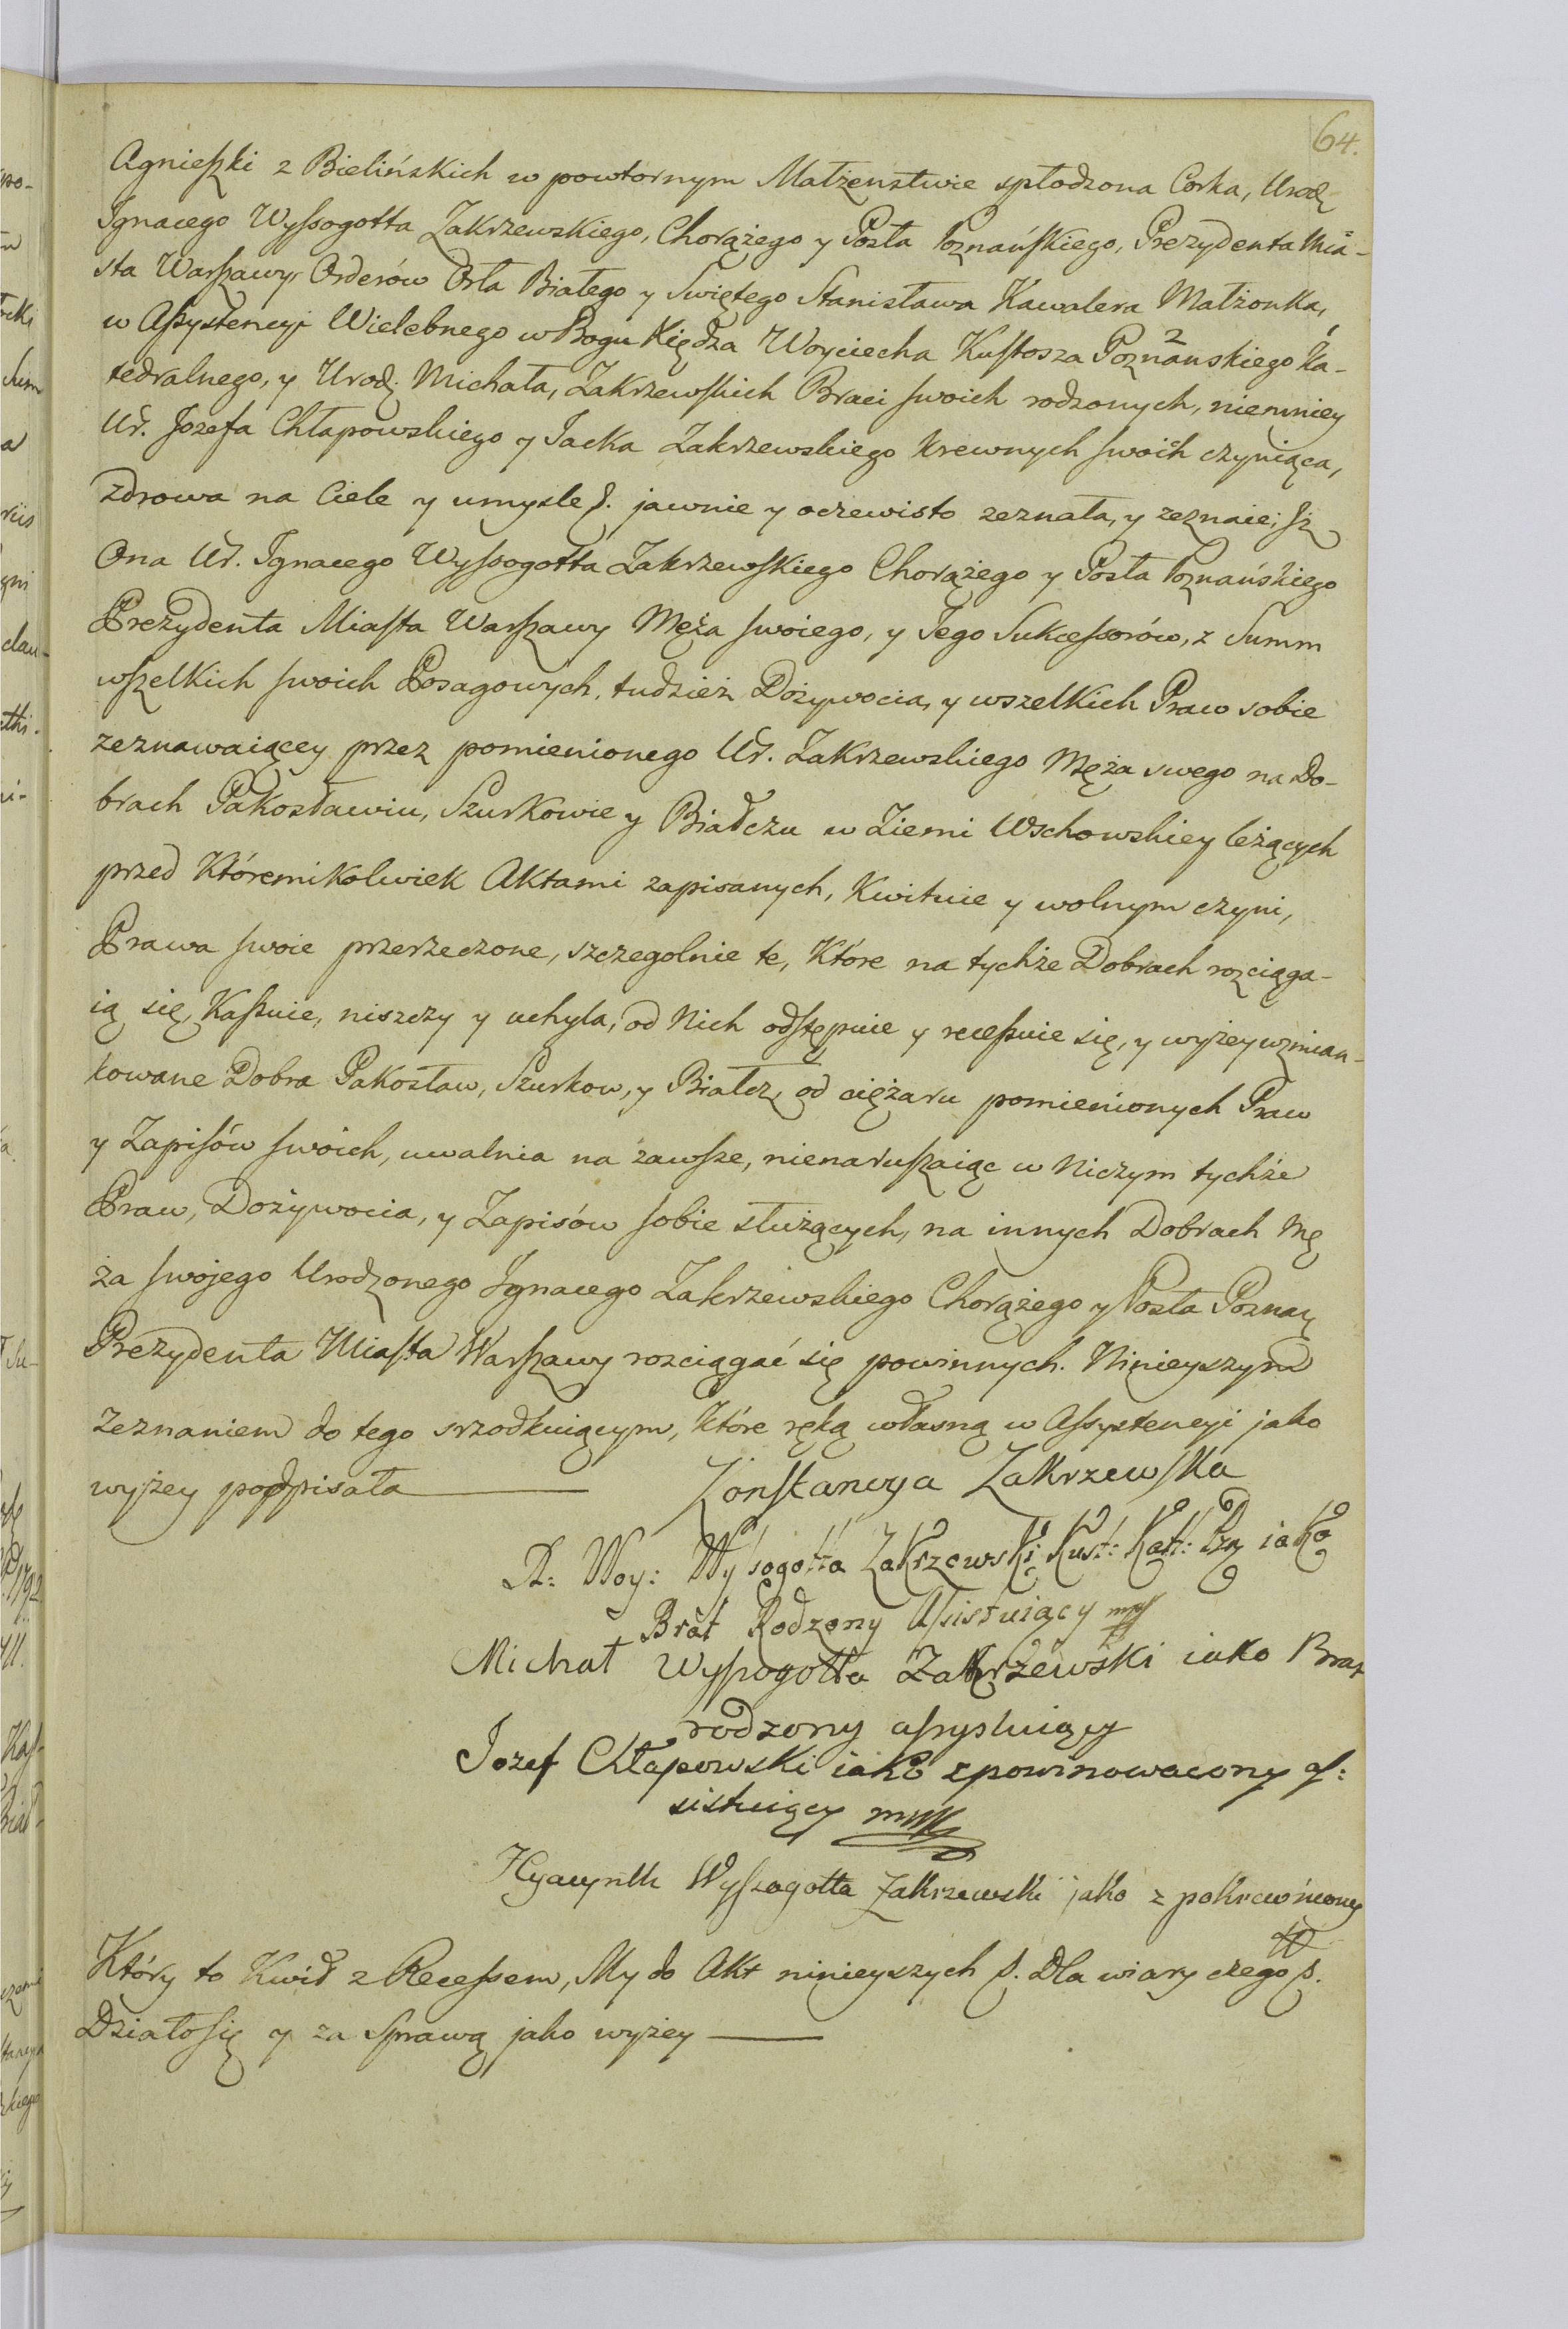 64.
Agnieszki z Bielińskich w powtornym Małżenstwie spłodzona Corka, Urodz
Ignacego Wyssogotta Zakrzewskiego, Chorążego y Posła Poznańskiego, Prezydenta Mia-
sta Warszawy, Orderów Orła Białego y Swiętego Stanisława Kawalera Małżonka,
w Assystencyi Wielebnego w Bogu Xiędza Woyciecha Kustosza Poznanskiego Ka-
2
tedralnego, y Urodz. Michała, Zakrzewskich Braci swoich rodzonych, niemniey
Ur. Jozefa Chłapowskiego y Jacka Zakrzewskiego krewnych swoich czyniąca,
zdrowa na Ciele y umysle jawnie y oczewisto zeznała, y zeznaie; Jż
Ona Ur. Ignacego Wyssogotta Zakrzewskiego Chorążego y Posła Poznańskiego
Prezydenta Miasta Warszawy Męża swoiego, y Jego Sukcessorów, z Summ
wszelkich swoich Posagowych, tudzież Dożywocia, y wszelkich Praw sobie
zeznawaiącey przez pomienionego Ur. Zakrzewskiego Męża swego na Do-
brach Pakosławiu, Szurkowie y Białczu w Ziemi Wschowskiey leżących
przed Któremikolwiek Aktami zapisanych, Kwituie y wolnym czyni,
Prawa swoie przerzeczone, szczegolnie te, Które na tychże Dobrach rozciąga-
ią się, Kassuie, niszczy y uchyla, od Nich odstępuie y recessuie się, y wyżey wzmian-
kowane Dobra Pakosław, Szurkow, y Białcz, od ciężaru pomienionych Praw
y Zapisów swoich, uwalnia na zawsze, nienaruszaiąc w Niczym tychże
Praw, Dożywocia, y Zapisów sobie służących, na innych Dobrach Mę
ża swojego Urodzonego Ignacego Zakrzewskiego Chorążego y Posła Poznań
Prezydenta Miasta Warszawy rozciągać się powinnych. Ninieyszym
Zeznaniem do tego srzodkuiącym, Które ręką własną w Assystencyi jako
wyżey podpisała
Konstancya Zakrzewska
X: Woy: Wyssogotta Zakrzewski Kust: Kath: Pzn iako
Brat Rodzony Asistuiący mp
Michał Wyssogotta Zakrzewski iako Brat
rodzony assystuiący
Jozef Chłapowski iako zpowinowacony as:
sistuiący mpp
Hyacynth Wyssogotta Zakrzewski jako z pokrewniony
Który to Kwit z Recessem, My do Akt ninieyszych p. Dla wiary czego p.
Działo się y za Sprawą jako wyżey